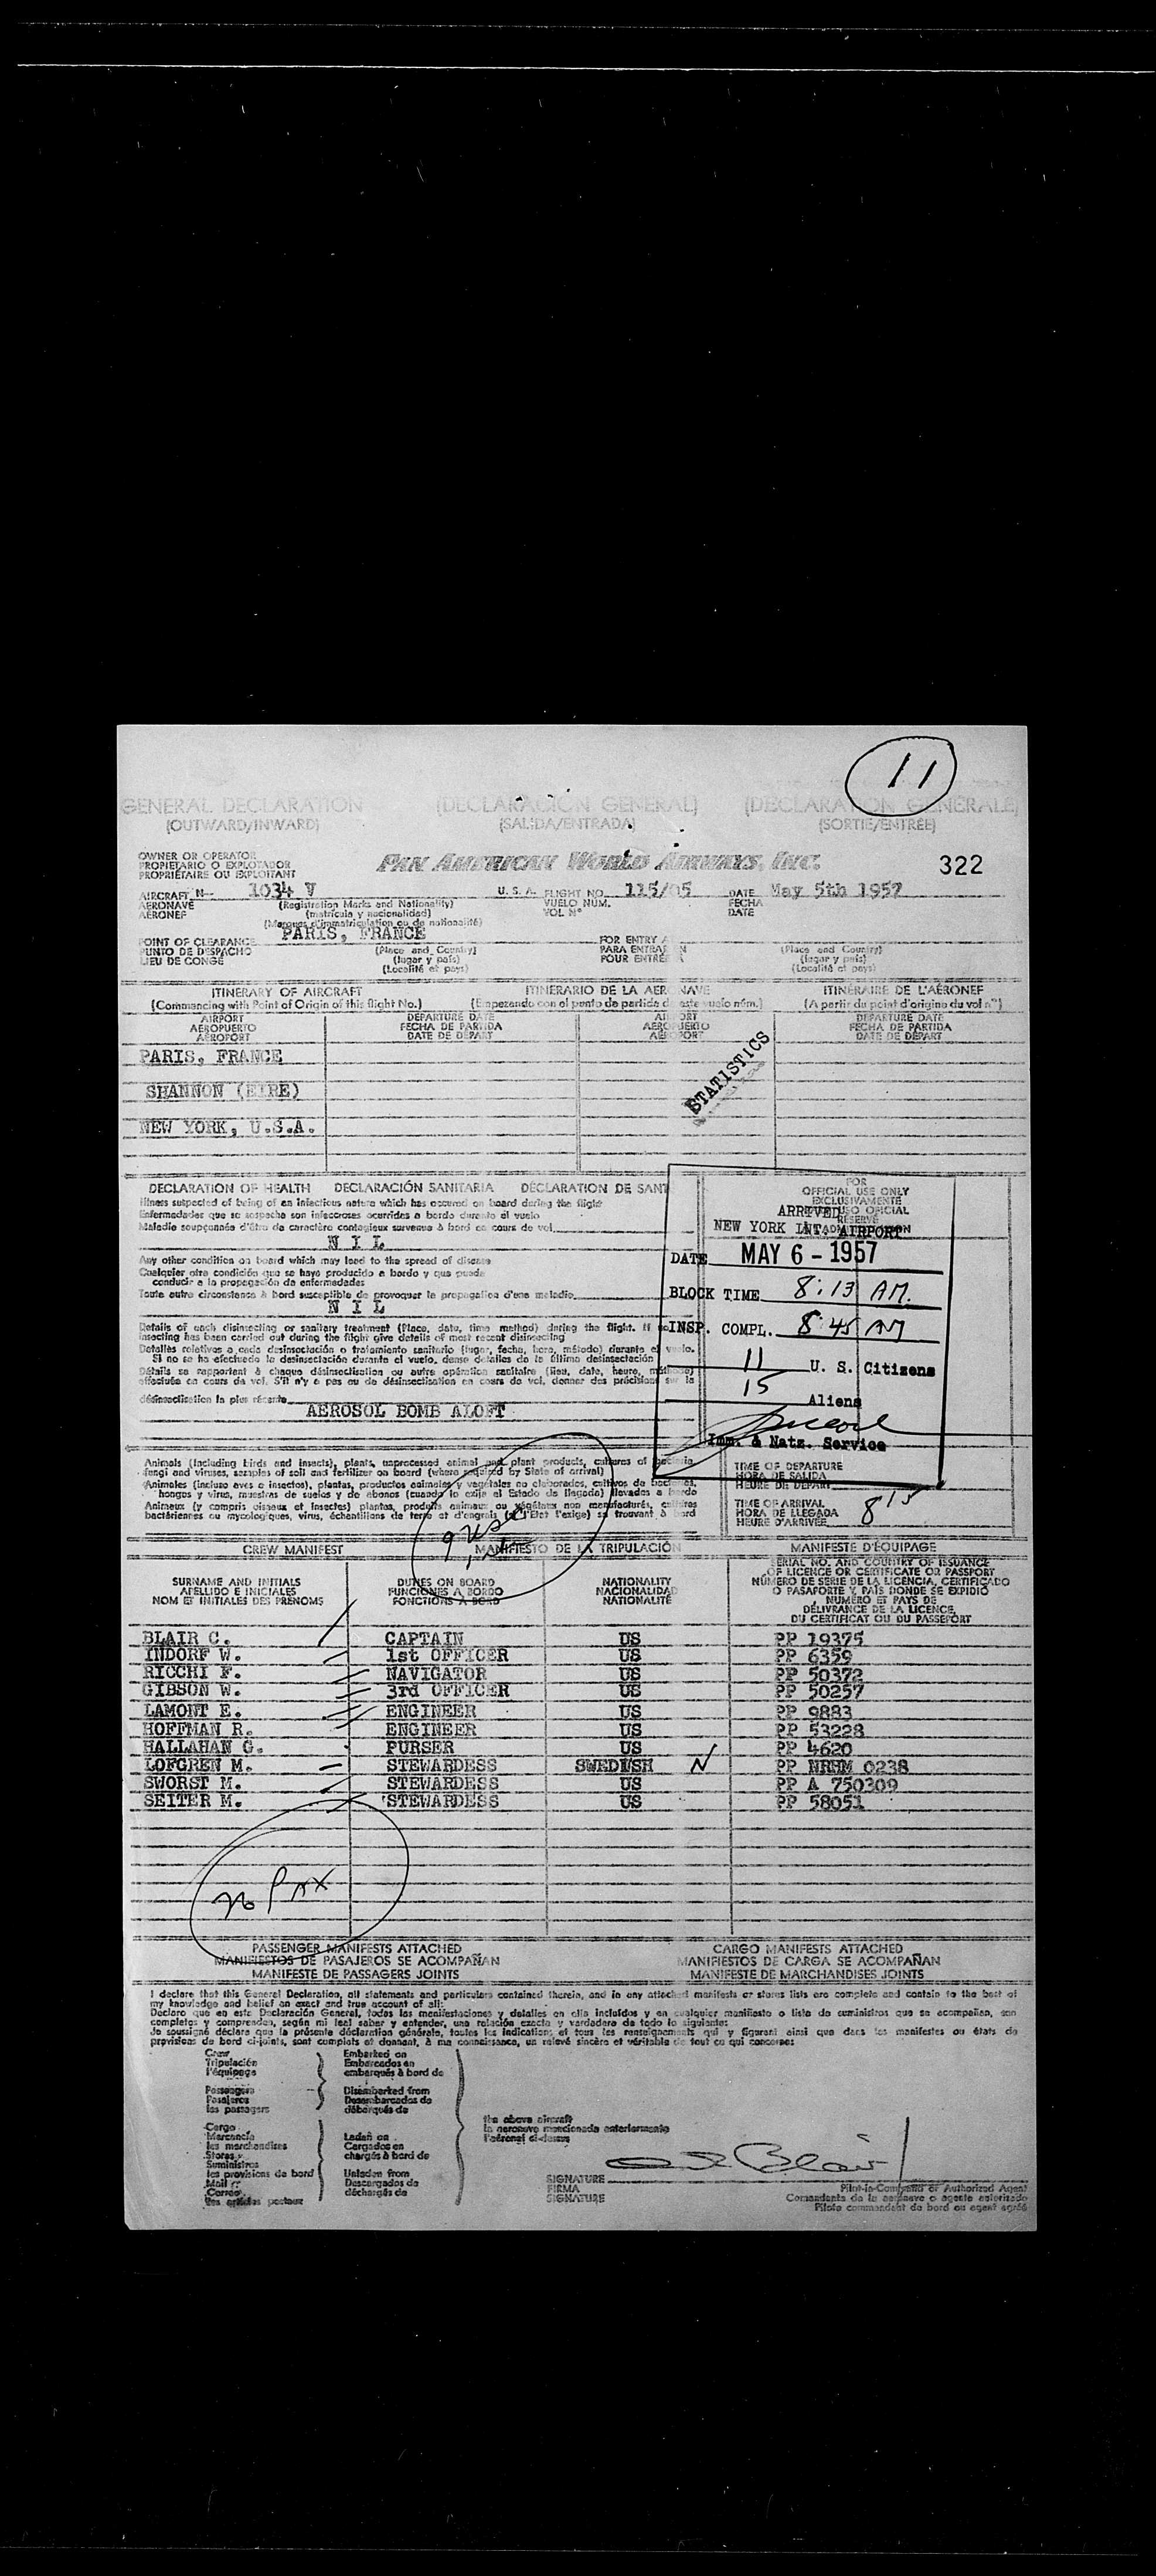 11
GENERAL DECLARATION (DECLARACIÓN GENERAL) (DECLARATION GENERALE)
(OUTWARD/INWARD) (SALIDA/ENTRADA) (SORTIE/ENTRÉE)
OWNER OR OPERATOR
PROPIETARIO O EXPLOTADOR
PROPRIÉTAIRE OU EXPLOITANT
PAN AMERICAN WORLD AIRWAYS, INC. 322
AIRCRAFT N- 1034 V U. S. A. FLIGHT NO. 115/05 DATE May 5th 1957
AERONAVE (Registration Marks and Nationality) VUELO NUM. FECHA
AÉRONEF (matrícula y nacionalidad) VOL Nº DATE
(Marques d'immatriculation ou de nationalité)
PARIS, FRANCE
POINT OF CLEARANCE (Place and Country) FOR ENTRY A (Place and Country)
PUNTO DE DESPACHO (lugar y país) PARA ENTRAR N (lugar y país)
LIEU DE CONGÉ (Localité et pays) POUR ENTRÉE (Localité et pays)
ITINERARY OF AIRCRAFT ITINERARIO DE LA AERONAVE ITINÉRAIRE DE L'AÉRONEF
(Commencing with Point of Origin of this flight No.) (Empezando con el punto de partida de este vuelo núm.) (A partir du point d'origine du vol nº)
AIRPORT DEPARTURE DATE AIRPORT DEPARTURE DATE
AEROPUERTO FECHA DE PARTIDA AEROPUERTO FECHA DE PARTIDA
AÉROPORT DATE DE DÉPART AÉROPORT DATE DE DÉPART
PARIS, FRANCE
STATISTICS
SHANNON (EIRE)
NEW YORK, U.S.A.
DECLARATION OF HEALTH DECLARACIÓN SANITARIA DÉCLARATION DE SANT
Illness suspected of being of an infectious nature which has occurred on board during the flight
Enfermedades que se sospecha son infecciosas ocurridas a bordo durante el vuelo
Maladie soupçonnée d'être de caractère contagieux survenue à bord en cours de vol
N I L
Any other condition on board which may lead to the spread of disease
Cualquier otra condición que se haya producido a bordo y que pueda
conducir a la propagación de enfermedades
Toute autre circonstance à bord susceptible de provoquer la propagation d'une maladie
N I L
Details of each disinsecting or sanitary treatment (Place, date, time method) during the flight. If no
insecting has been carried out during the flight give details of most recent disinsecting
Detalles relativos a cada desinsectación o tratamiento sanitario (lugar, fecha, hora, método) durante el vuelo.
Si no se ha efectuado la desinsectación durante el vuelo, dense detalles de la última desinsectación
Détails se rapportant à chaque désinsectisation ou autre opération sanitaire (lieu, date, heure, méthode)
effectuée en cours de vol. S'il n'y a pas eu de désinsectisation en cours de vol, donner des précisions sur la
désinsectisation la plus récente
AEROSOL BOMB ALOFT
FOR
OFFICIAL USE ONLY
EXCLUSIVAMENTE
USO OFICIAL
RÉSERVÉ
ARRIVED
NEW YORK INT. AIRPORT
DATE MAY 6 - 1957
BLOCK TIME 8:13 AM.
INSP. COMPL. 8:45 AM
11 U. S. Citizens
15 Aliens
Imm. & Natz. Service
Animals (including birds and insects), plants, unprocessed animal and plant products, cultures of bacteria,
fungi and viruses, samples of soil and fertilizer on board (where required by State of arrival)
Animales (incluso aves o insectos), plantas, productos animales y vegetales no elaborados, cultivos de bacterias,
hongos y virus, muestras de suelos y de abonos (cuando lo exija el Estado de llegada) llevados a bordo
Animaux (y compris oiseaux et insectes) plantes, produits animaux ou végétaux non manufacturés, cultures
bactériennes ou mycologiques, virus, échantillons de terre et d'engrais (si l'État l'exige) se trouvant à bord
TIME OF DEPARTURE
HORA DE SALIDA
HEURE DE DÉPART
TIME OF ARRIVAL
HORA DE LLEGADA 8 15
HEURE D'ARRIVÉE
CREW MANIFEST MANIFIESTO DE LA TRIPULACIÓN MANIFESTE D'ÉQUIPAGE
SURNAME AND INITIALS DUTIES ON BOARD NATIONALITY SERIAL NO. AND COUNTRY OF ISSUANCE
APELLIDO E INICIALES FUNCIONES A BORDO NACIONALIDAD OF LICENCE OR CERTIFICATE OR PASSPORT
NOM ET INITIALES DES PRÉNOMS FONCTIONS A BORD NATIONALITÉ NÚMERO DE SERIE DE LA LICENCIA, CERTIFICADO
O PASAPORTE Y PAÍS DONDE SE EXPIDIÓ
NUMÉRO ET PAYS DE
DÉLIVRANCE DE LA LICENCE,
DU CERTIFICAT OU DU PASSEPORT
BLAIR C. CAPTAIN US PP 19375
INDORF W. 1st OFFICER US PP 6359
RICCHI F. NAVIGATOR US PP 50372
GIBSON W. 3rd OFFICER US PP 50257
LAMONT E. ENGINEER US PP 9883
HOFFMAN R. ENGINEER US PP 53228
HALLAHAN G. PURSER US PP 4620
LOFGREN M. STEWARDESS SWEDISH N PP NRHM 0238
SWORST M. STEWARDESS US PP A 750309
SEITER M. STEWARDESS US PP 58051
no Pax
PASSENGER MANIFESTS ATTACHED CARGO MANIFESTS ATTACHED
MANIFIESTOS DE PASAJEROS SE ACOMPAÑAN MANIFIESTOS DE CARGA SE ACOMPAÑAN
MANIFESTE DE PASSAGERS JOINTS MANIFESTE DE MARCHANDISES JOINTS
I declare that this General Declaration, all statements and particulars contained therein, and in any attached manifests or stores lists are complete and contain to the best of
my knowledge and belief an exact and true account of all:
Declaro que en esta Declaración General, todas las manifestaciones y detalles en ella incluidos y en cualquier manifiesto o lista de suministros que se acompañan, son
completos y comprenden, según mi leal saber y entender, una relación exacta y verdadera de todo lo siguiente:
Je soussigné déclare que la présente déclaration générale, toutes les indications et tous les renseignements qui y figurent ainsi que dans les manifestes ou états de
provisions de bord ci-joints, sont complets et donnent, à ma connaissance, un relevé sincère et véritable de tout ce qui concerne:
Crew Embarked on
Tripulación Embarcados en
l'équipage embarqués à bord de
Passengers Disembarked from
Pasajeros Desembarcados de
les passagers débarqués de
the above aircraft
la aeronave mencionada anteriormente
l'aéronef ci-dessus
Cargo Laden on
Mercancía Cargados en
les marchandises chargés à bord de
Stores
Suministros
les provisions de bord Unladen from
Mail Descargados de
Correo déchargés de
les articles postaux
SIGNATURE Blair
FIRMA
SIGNATURE
Pilot-in-Command or Authorized Agent
Comandante de la aeronave o agente autorizado
Pilote commandant de bord ou agent agréé